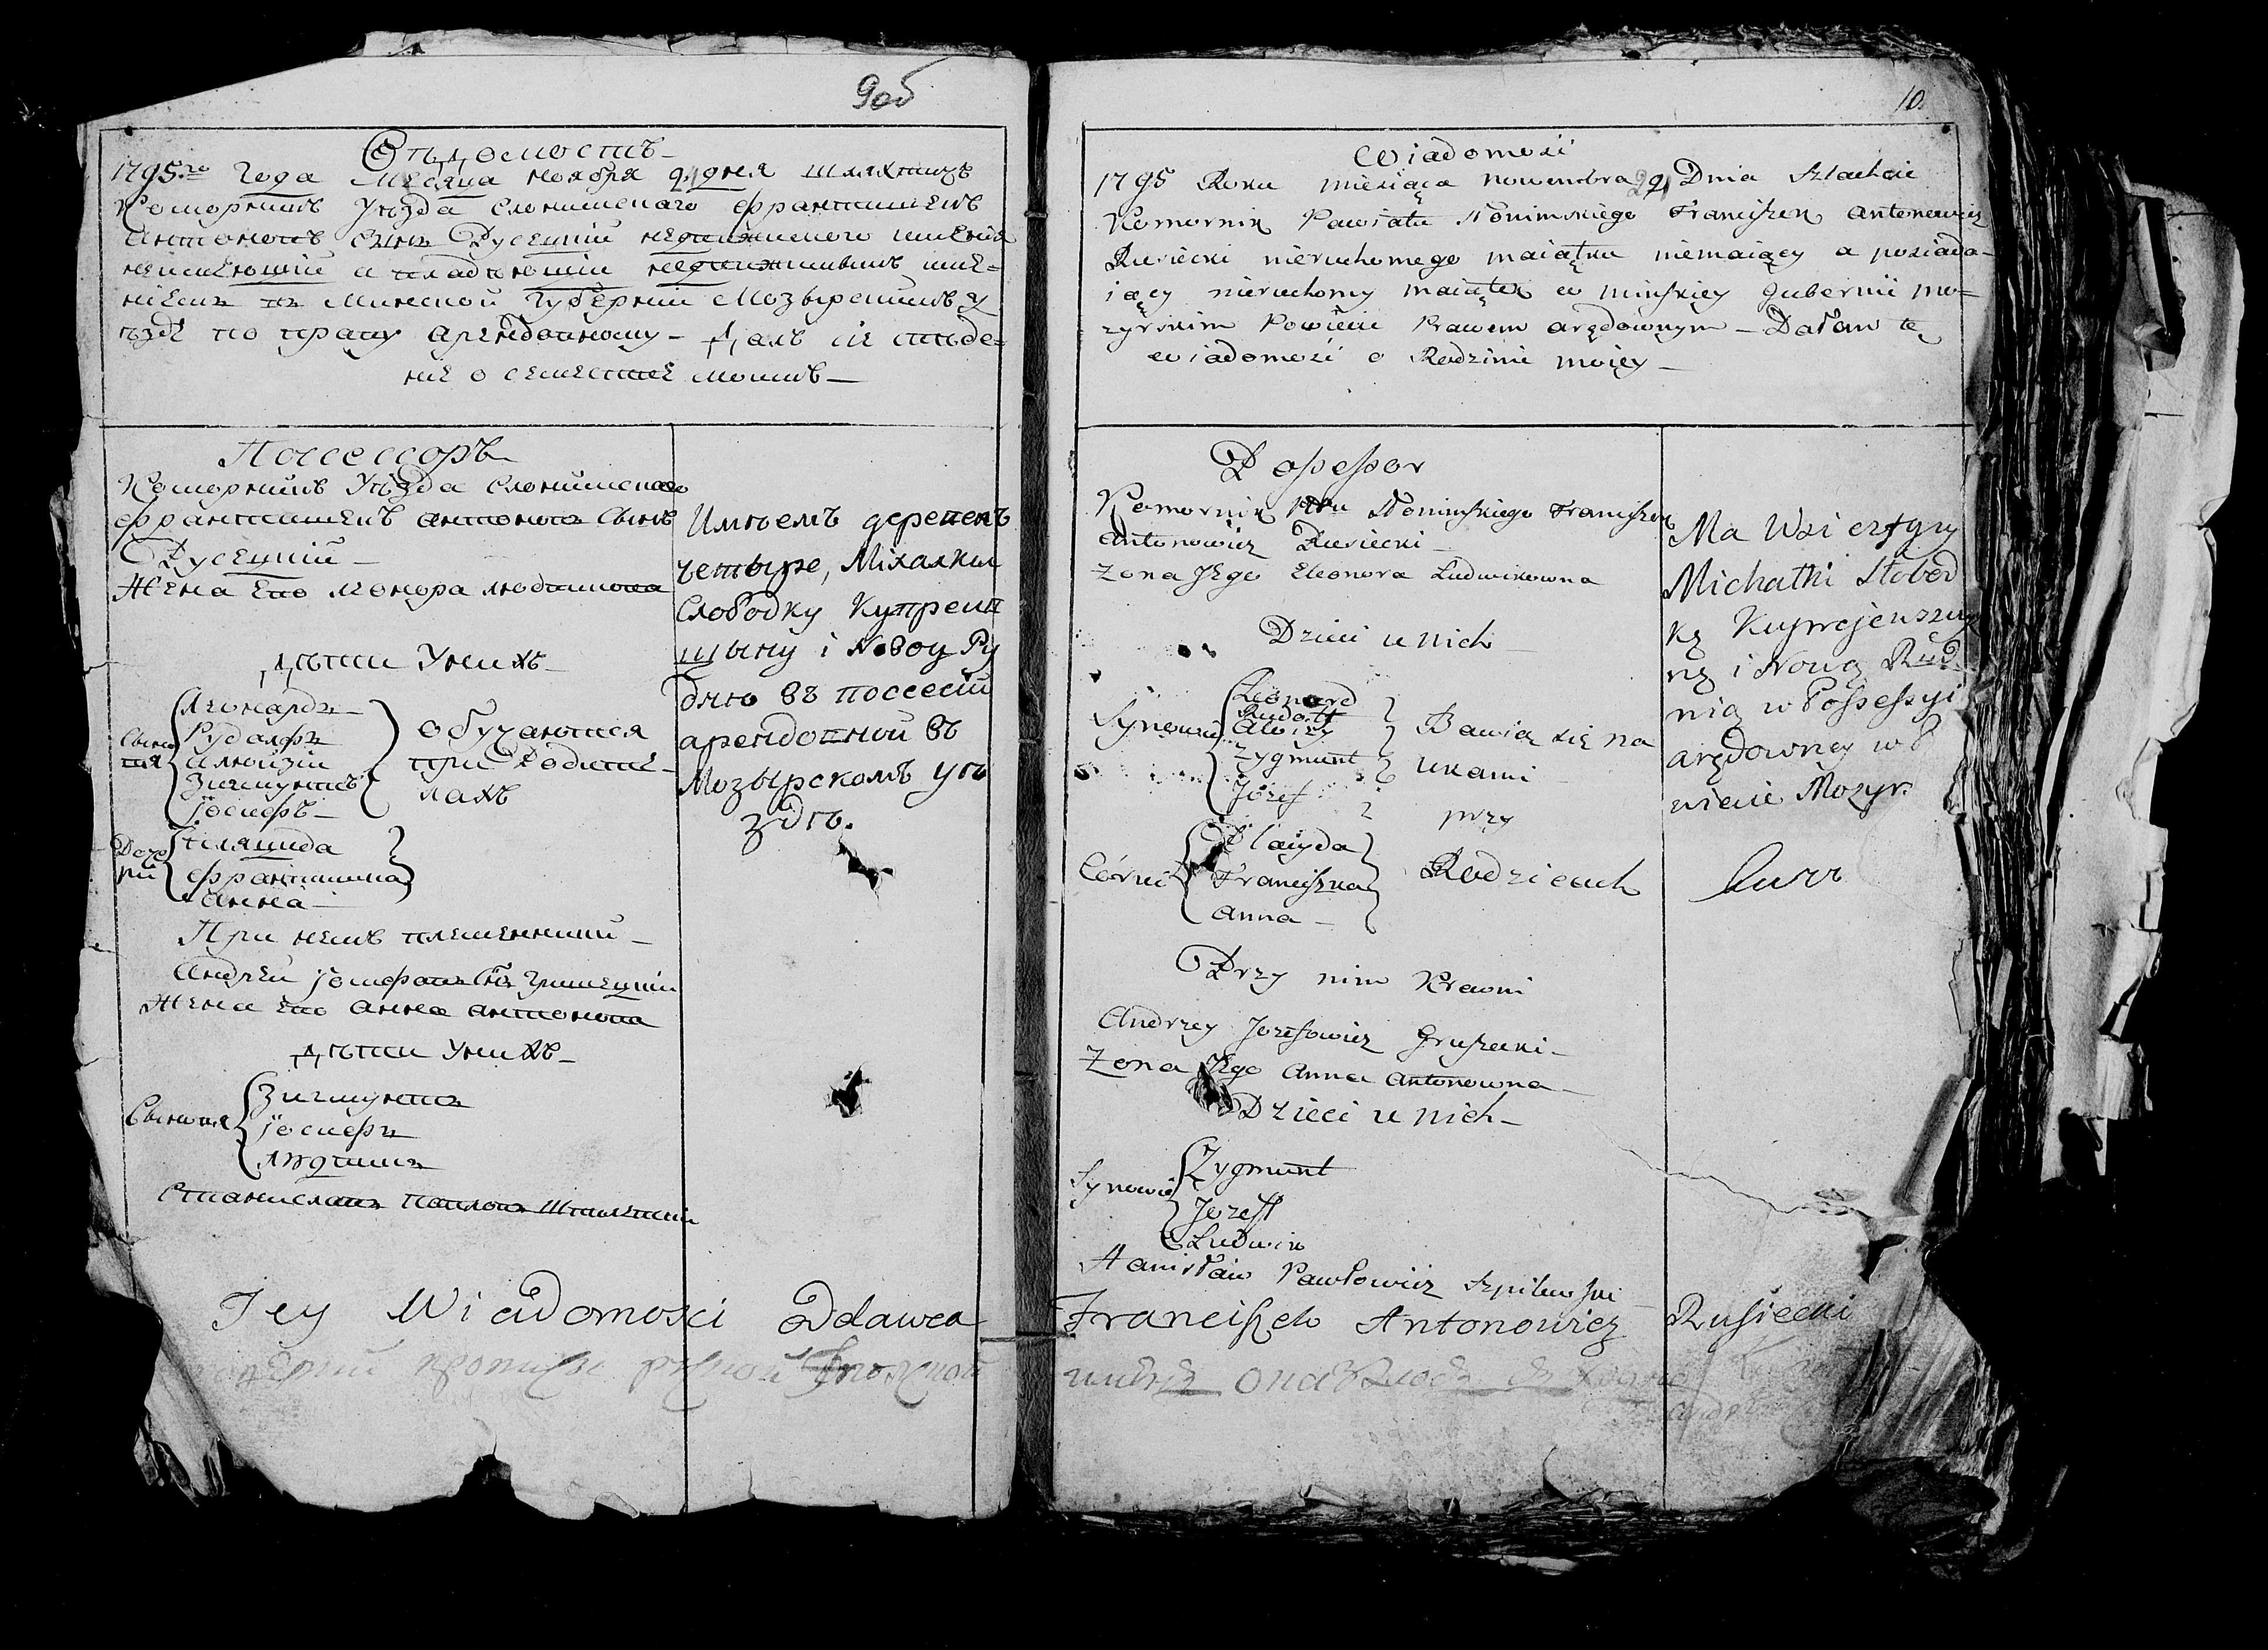 9об
Вѣдомость
1795го Года Месяца ноября дня шляхтичь
Коморникъ Уѣзда Слонимскаго Францишекъ
Антоновъ Сынъ Русецкий недвижимого имения
неимеющий а владеющий недвижимымъ име=
ниемъ въ Минской Губернии Мозырскомъ у
ѣзде по праву арендовному - Далъ сіе сведе=
ние о семействе моимъ -
Поссессоръ
Коморникъ Уѣзда Слонимскаго
Францишекъ Антоновъ Сынъ
Русецкий -
Жена Его Леонора Людвикова
Дѣти Унихъ -
Сыновя
Леонардъ -
Рудалфъ
Алюизий
Зигмунтъ
Іосифъ -
Обучаются
при Родите-
лахъ
Дочери
Францишка
Анна -
При немъ племенники -
Андрей Іосифовъ Сынъ Грушецкий
Жена Его Анна Антонова
Дѣти Унихъ -
Сыновя
Зигмунтъ
Іосифъ
Людвикъ
Станиславъ Павловъ Шпилевский
Имѣемъ деревенъ
четыре, Міхалки
Слободку Купреев
щыну і Новоу Ру
дню въ поссесіи
арендовной въ
Мозырскомъ уѣ
здѣ.
Tey Wiadomosci Oddawca
10.
Wiadomosci
1795 Roku miesiąca nowembra Dnia Szlachcic
Komornik Powiatu Słonimskiego Franciszek Antonowicz
Rusiecki nieruchomego maiątku niemaiący a posiada-
iący nieruchomy maiątek w minskiey Gubernii mo-
zyrskim Powiecie Prawem arędownym - Dałem tę
wiadomość o Rodzinie moiey -
Possessor
Komornik Pttu Słonimskiego Franciszek
Antonowicz Rusiecki -
Zona Jego Eleonora Ludwikowna
Dzieci u nich -
Synowie
Leonard
Rudolff
Aloizy
Zygmunt
Jozef
Bawią się na
ukami
przy
Rodzicach
Córki
Placyda
Franciszka
Anna -
Przy nim Krewni
Andrzey Jozefowicz Gruszecki -
Zona Jego Anna Antonowna -
Dzieci u nich -
Synowie
Zygmunt
Jozeff
Ludwik
Stanisław Pawłowicz Szpilewski
Ma Wsi cztyry
Michałki Słobod
kę Kuprejewszczy
nę i Nową Rud
nią w Possessyi
arędowney w P
wiecie Mozyr.
Franciszek Antonowicz Rusiecki